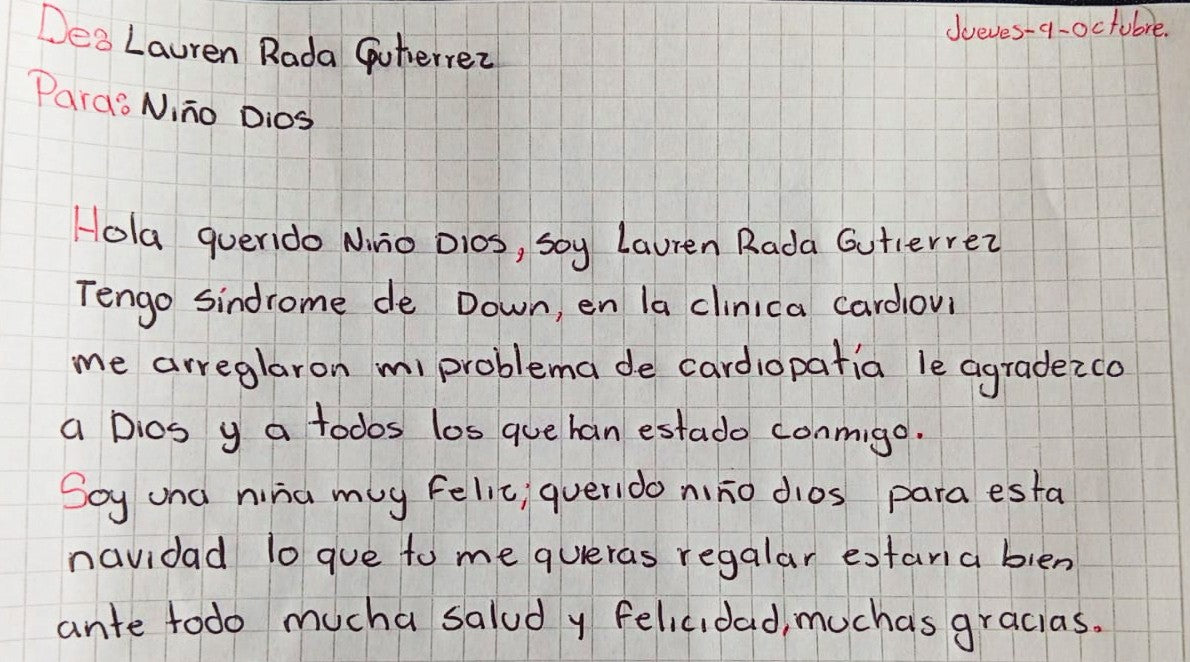 De: Lauren Rada Gutierrez
Jueves-9-octubre.
Para: Niño Dios
Hola querido Niño Dios, soy Lauren Rada Gutierrez
Tengo sindrome de Down, en la clinica cardiovi
me arreglaron mi problema de cardiopatía le agradezco
a Dios y a todos los que han estado conmigo.
Soy una niña muy feliz; querido niño dios para esta
navidad lo que tu me quieras regalar estaria bien
ante todo mucha salud y felicidad, muchas gracias.